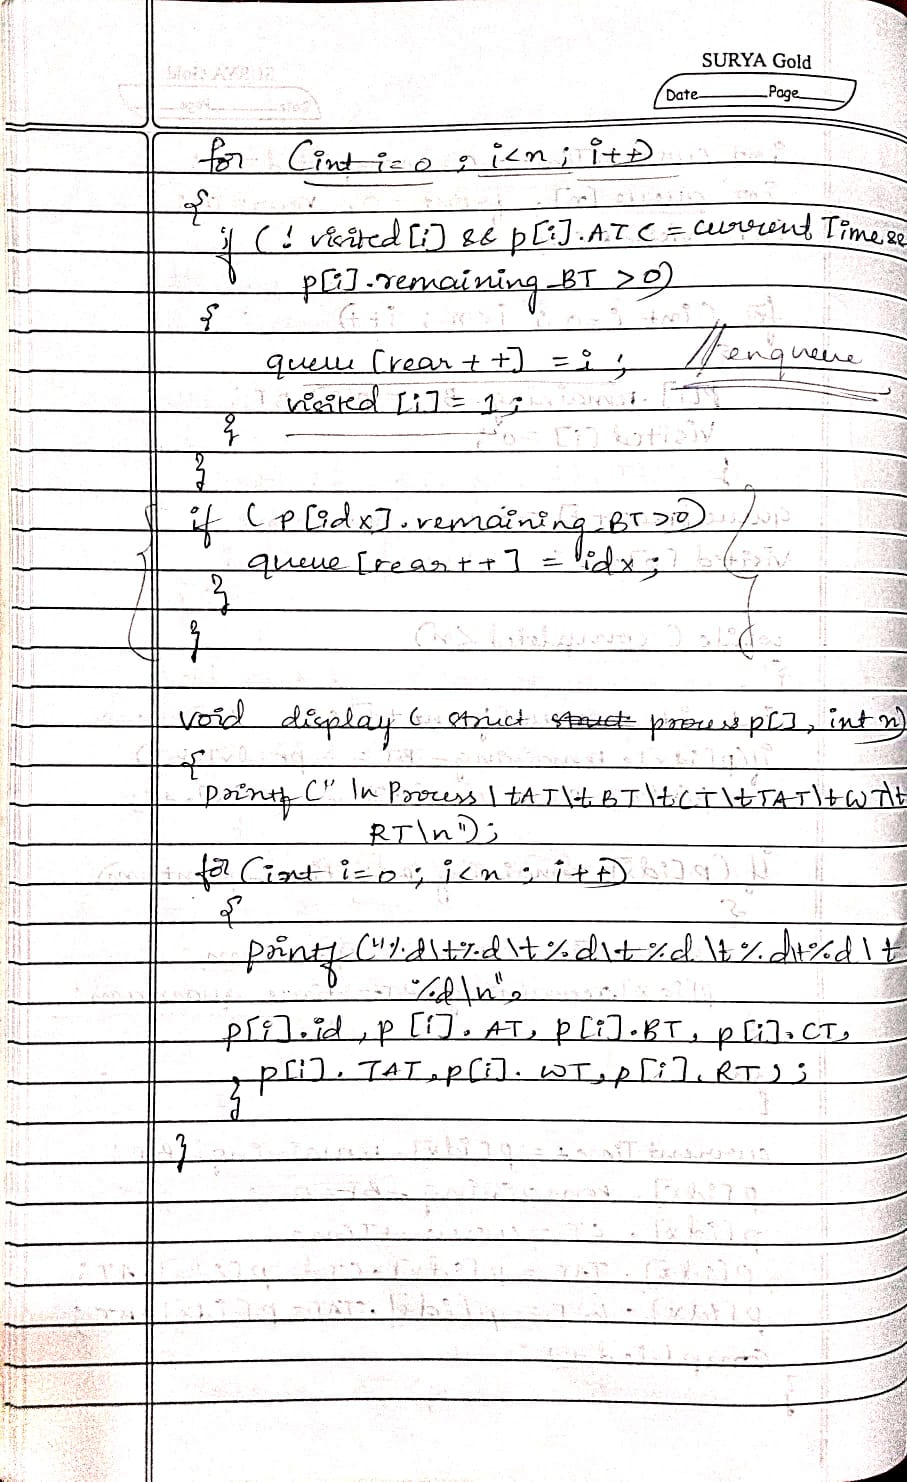 SURYA Gold
Date Page
for (int i=0 ; i<n ; i++)
{
if (! visited [i] && p[i].AT <= current Time &&
p[i].remaining_BT >0)
{
queue [rear++] = i ; // enqueue
visited [i] = 1 ;
}
}
if (p[idx].remaining_BT>0)
queue [rear++] = idx ;
}
}
void display ( struct struct process p[], int n)
{
printf (" \n Process \tAT\t BT \tCT\t TAT\t WT\t
RT\n");
for (int i=0 ; i<n ; i++)
{
printf ("%d\t%d\t %d\t %d \t %d\t%d\t
%d\n",
p[i].id, p[i].AT, p[i].BT, p[i].CT,
p[i].TAT, p[i].WT, p[i].RT);
}
}